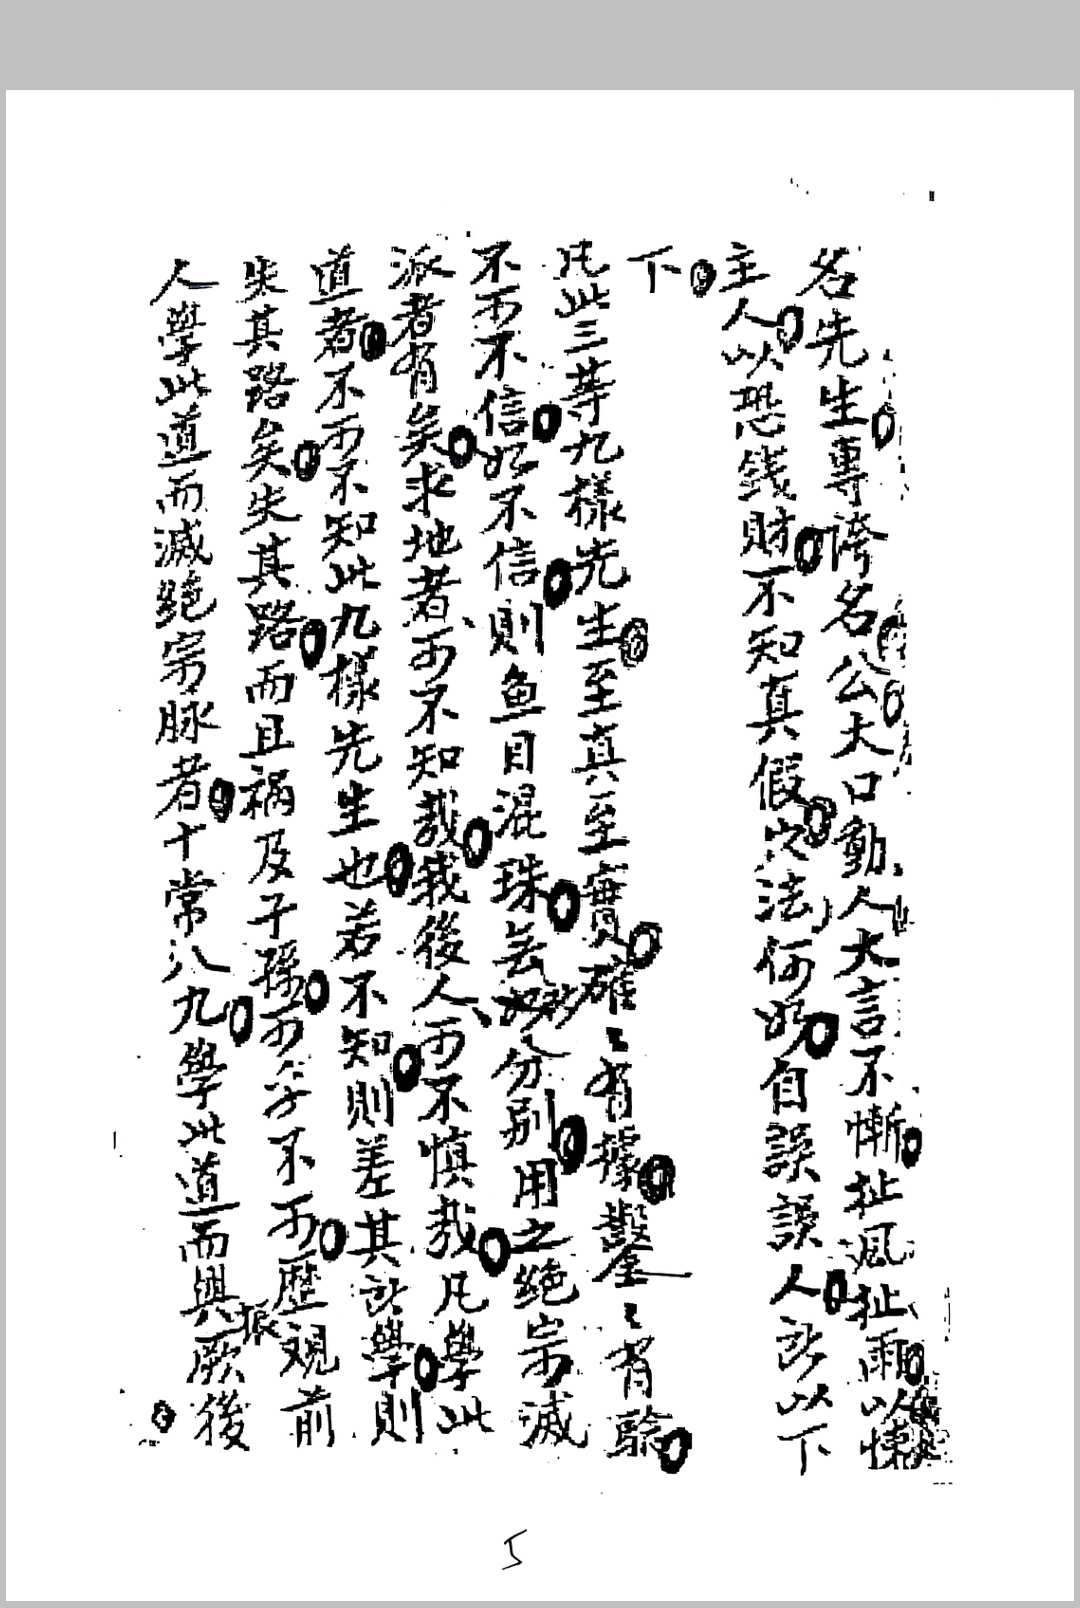 名先生專誇名公大口動人大言不慚扯風扯雨以悚
主人以恐錢財不知真假穴法何如自誤誤人所以下
下
凡此三等九樣先生至真至實確〻有據鑿〻有驗
不可不信如不信則鱼目混珠无分別用之绝宗滅
派者有矣求地者可不知哉我後人可不慎哉凡學此
道者不可不知此九樣先生也若不知則差其所學則
失其路矣失其路而且禍及子孫可乎不可歷观前
人學此道而滅絕宗脉者十常八九學此道而興振厥後
5